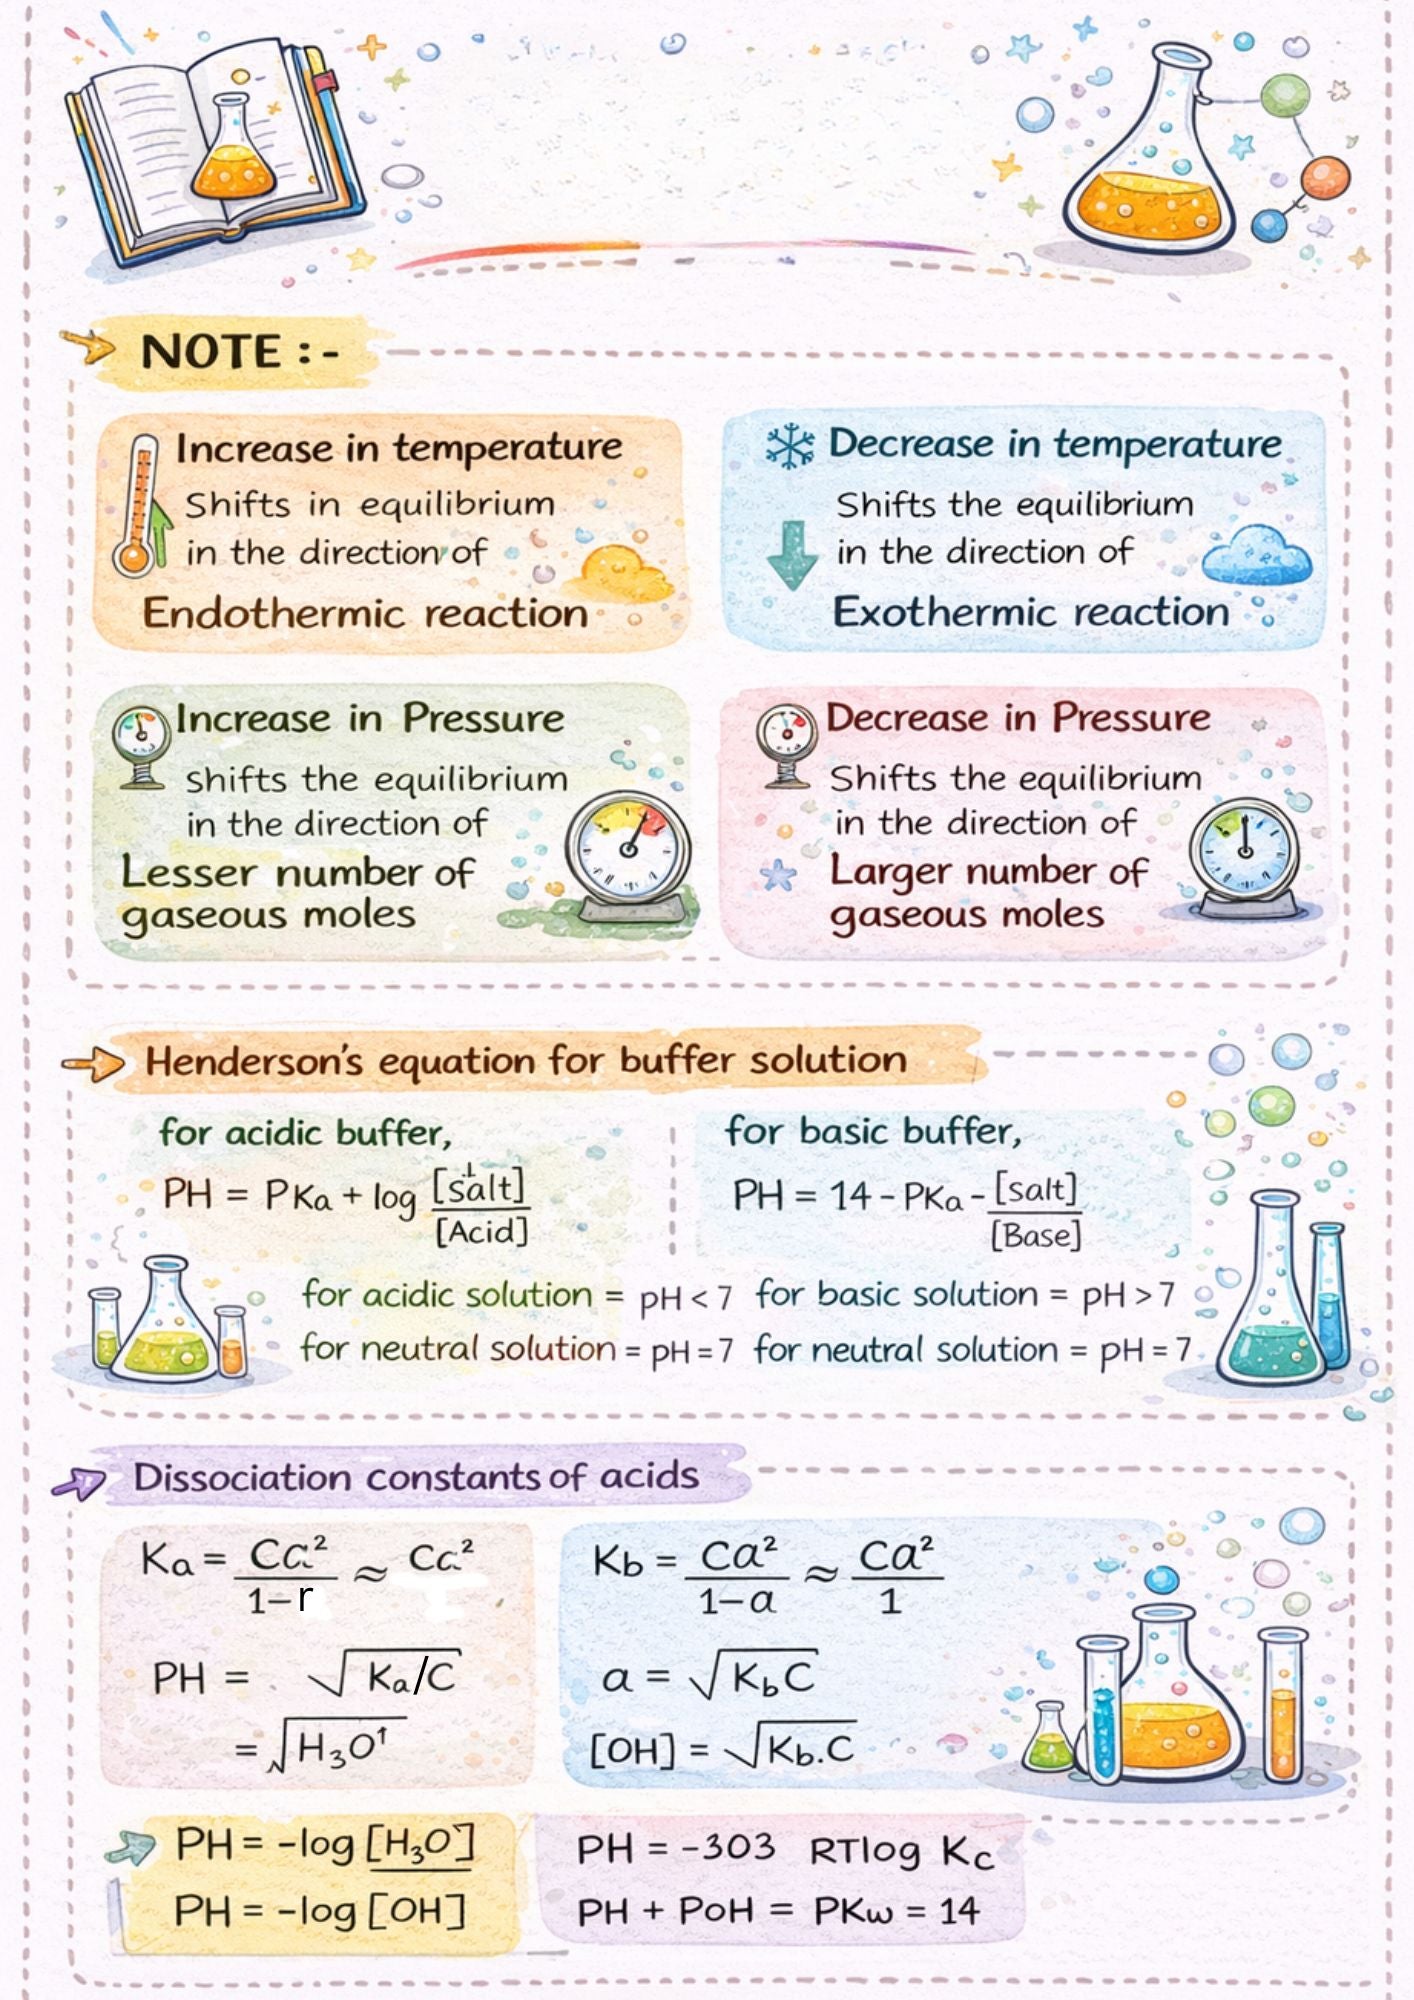 NOTE : -
Increase in temperature
Shifts in equilibrium
in the direction of
Endothermic reaction
Decrease in temperature
Shifts the equilibrium
in the direction of
Exothermic reaction
Increase in Pressure
Shifts the equilibrium
in the direction of
Lesser number of
gaseous moles
Decrease in Pressure
Shifts the equilibrium
in the direction of
Larger number of
gaseous moles
Henderson's equation for buffer solution
for acidic buffer,
PH = PKa + log [salt]/[Acid]
for basic buffer,
PH = 14 - PKa - [salt]/[Base]
for acidic solution = pH < 7
for basic solution = pH > 7
for neutral solution = pH = 7
for neutral solution = pH = 7
Dissociation constants of acids
Ka = Ca²/1-r ≈ Ca²
PH = √Ka/C
= √H₃O↑
Kb = Ca²/1-a ≈ Ca²/1
a = √KbC
[OH] = √Kb.C
PH = -log [H₃O]
PH = -log [OH]
PH = -303 RTlog Kc
PH + PoH = PKw = 14